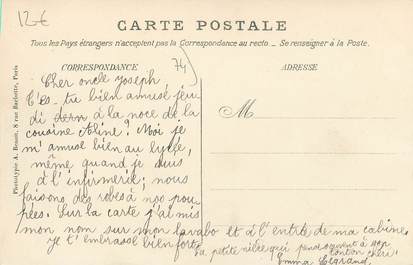 12€
CARTE POSTALE
Tous les Pays étrangers n'acceptent pas la Correspondance au recto. - Se renseigner à la Poste.
CORRESPONDANCE
74
ADRESSE
Phototypie A. Breger, 8 rue Barbette, Paris
Cher oncle Joseph
T'es-tu bien amusé jeu-
di dern à la noce de la
cousine Aline? Moi je
m'amuse bien au lycée,
même quand je suis
à l'infirmerie; nous
faisons des robes à nos pou-
pées. Sur la carte j'ai mis
mon nom sur mon lavabo et à l'entrée de ma cabine.
Je t'embrasse bien fort.
Ta petite nièce qui pense souvent à son
tonton chéri.
Emma Legrand
M